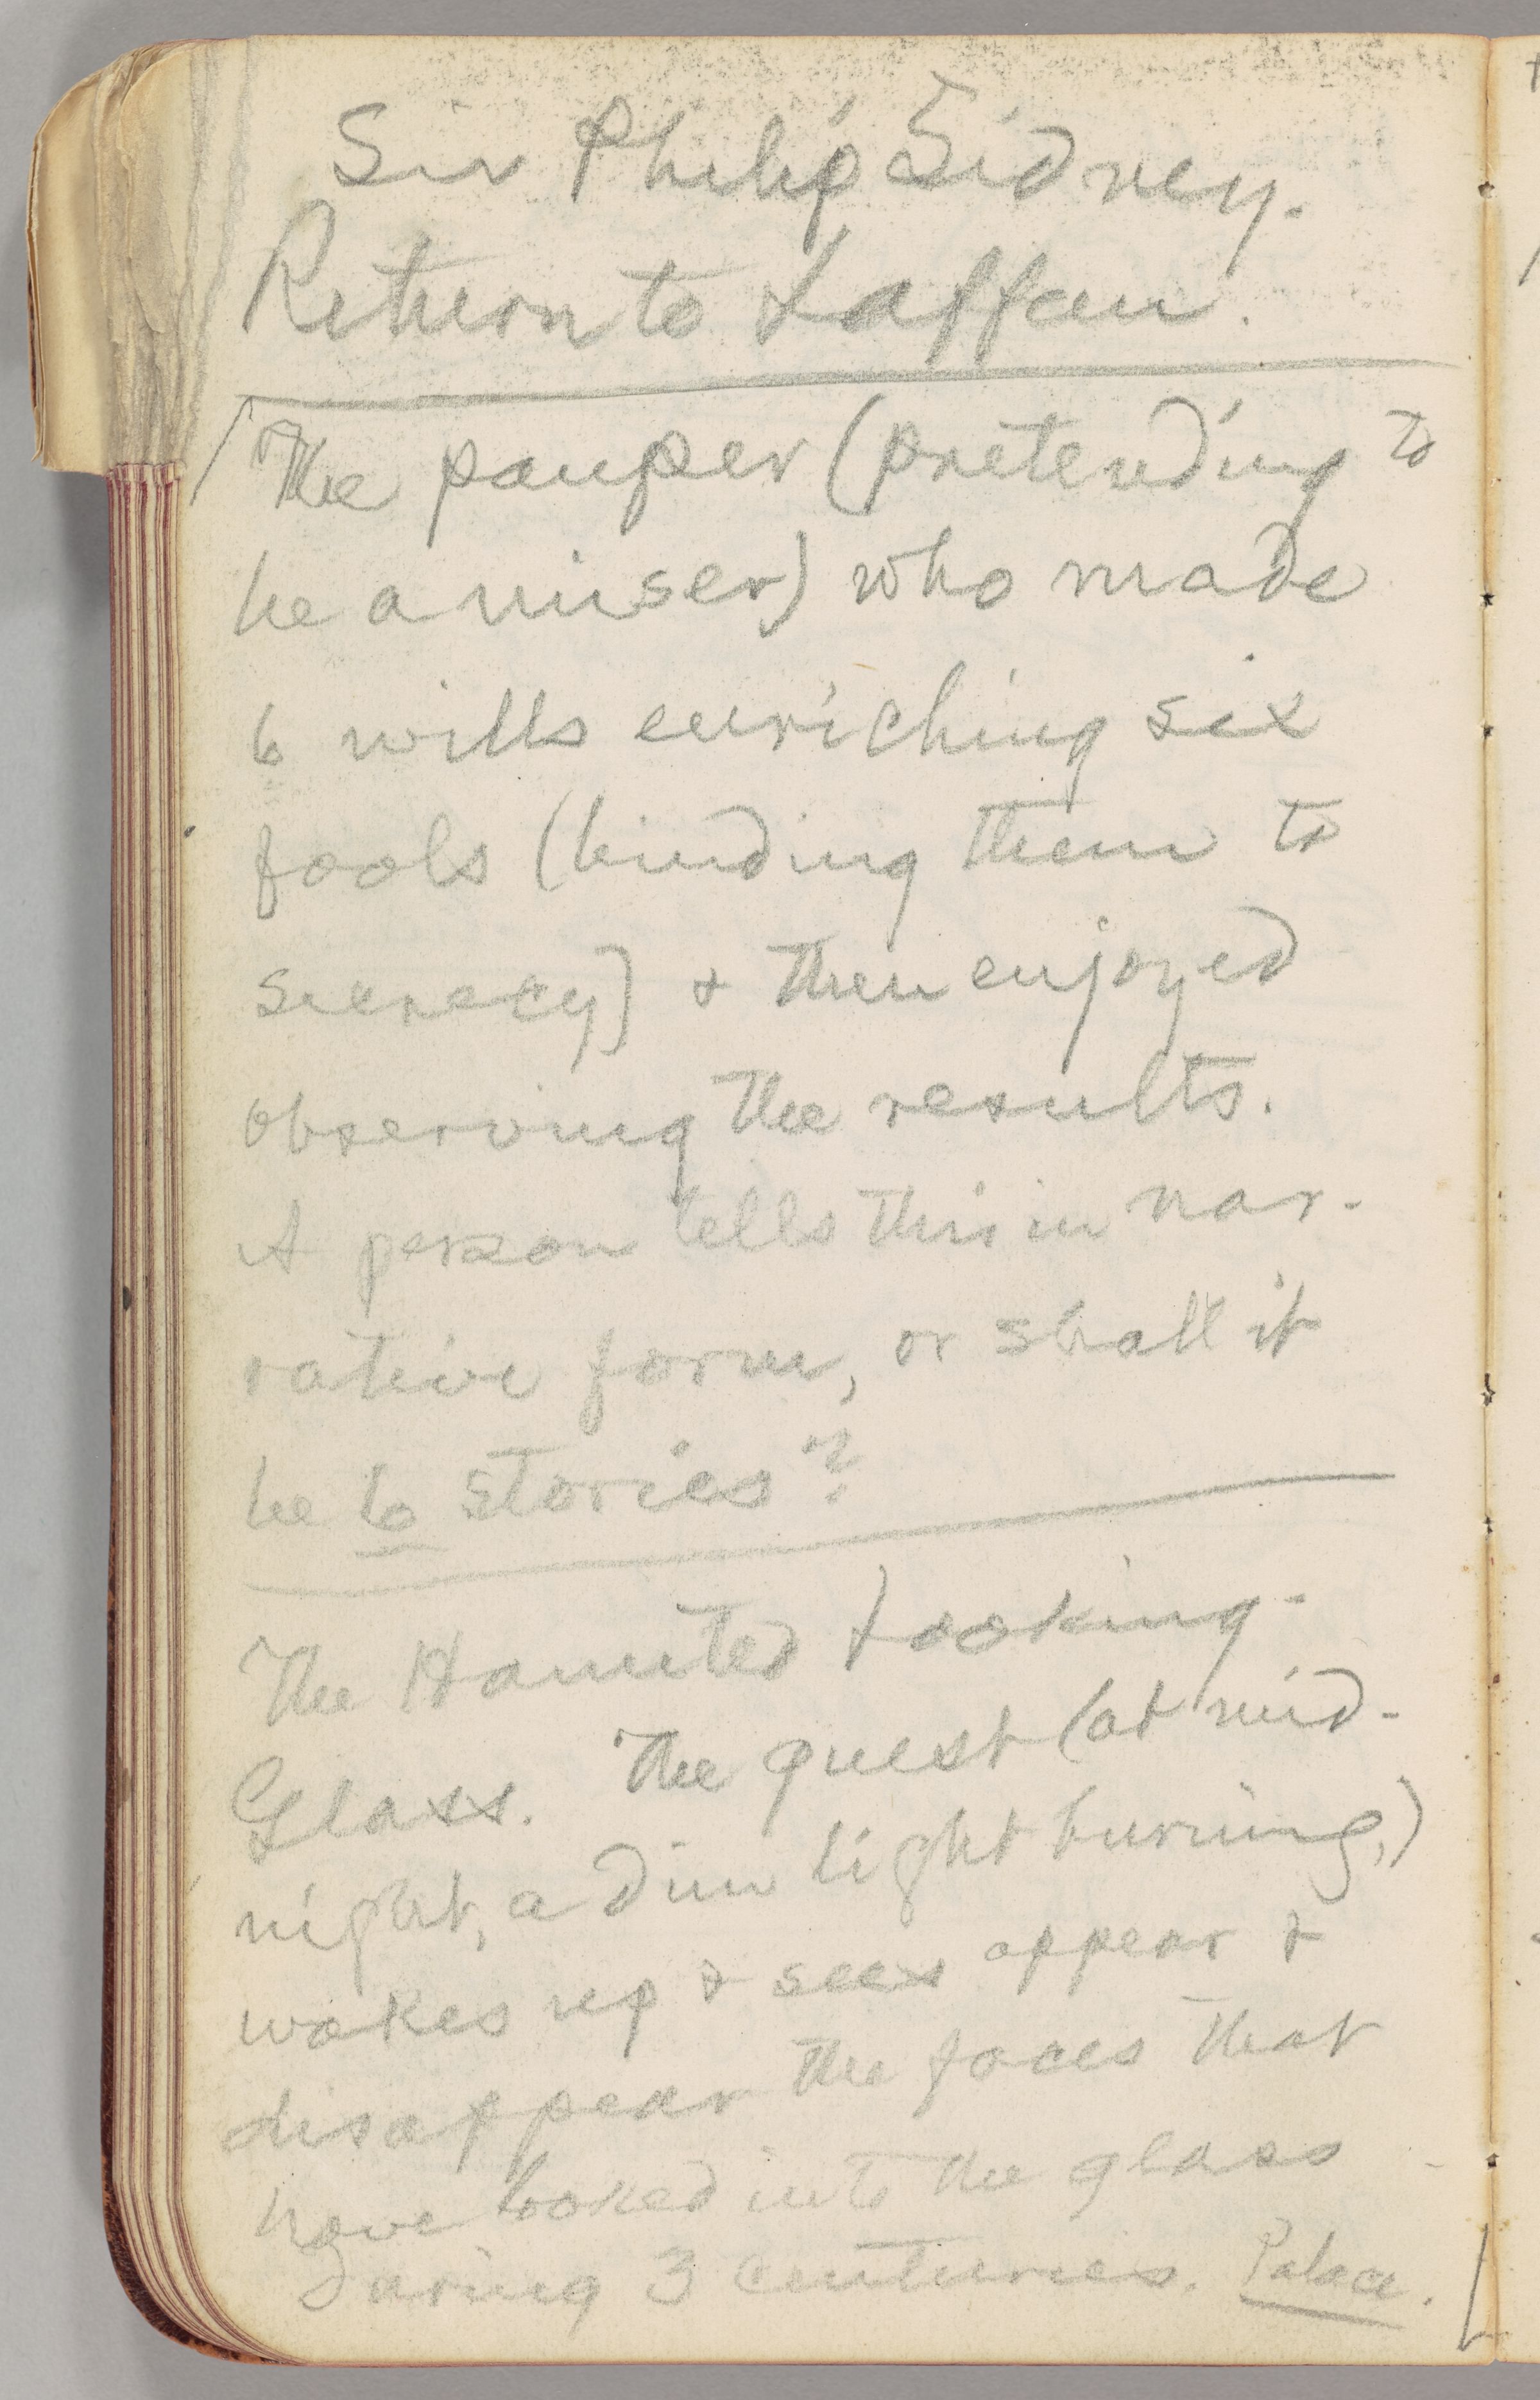 Sir Philip Sidney.
Return to Laffan.
The pauper (pretending to
be a miser) who made
6 wills enriching six
fools (binding them to
secrecy) & then enjoyed
observing the results.
A person tells this in nar-
rative form, or shall it
be 6 stories?
The Haunted Looking-
Glass. The guest (at mid-
night, a dim light burning,)
wakes up & sees appear &
disappear the faces that
have looked into the glass
during 3 centuries. Palace.